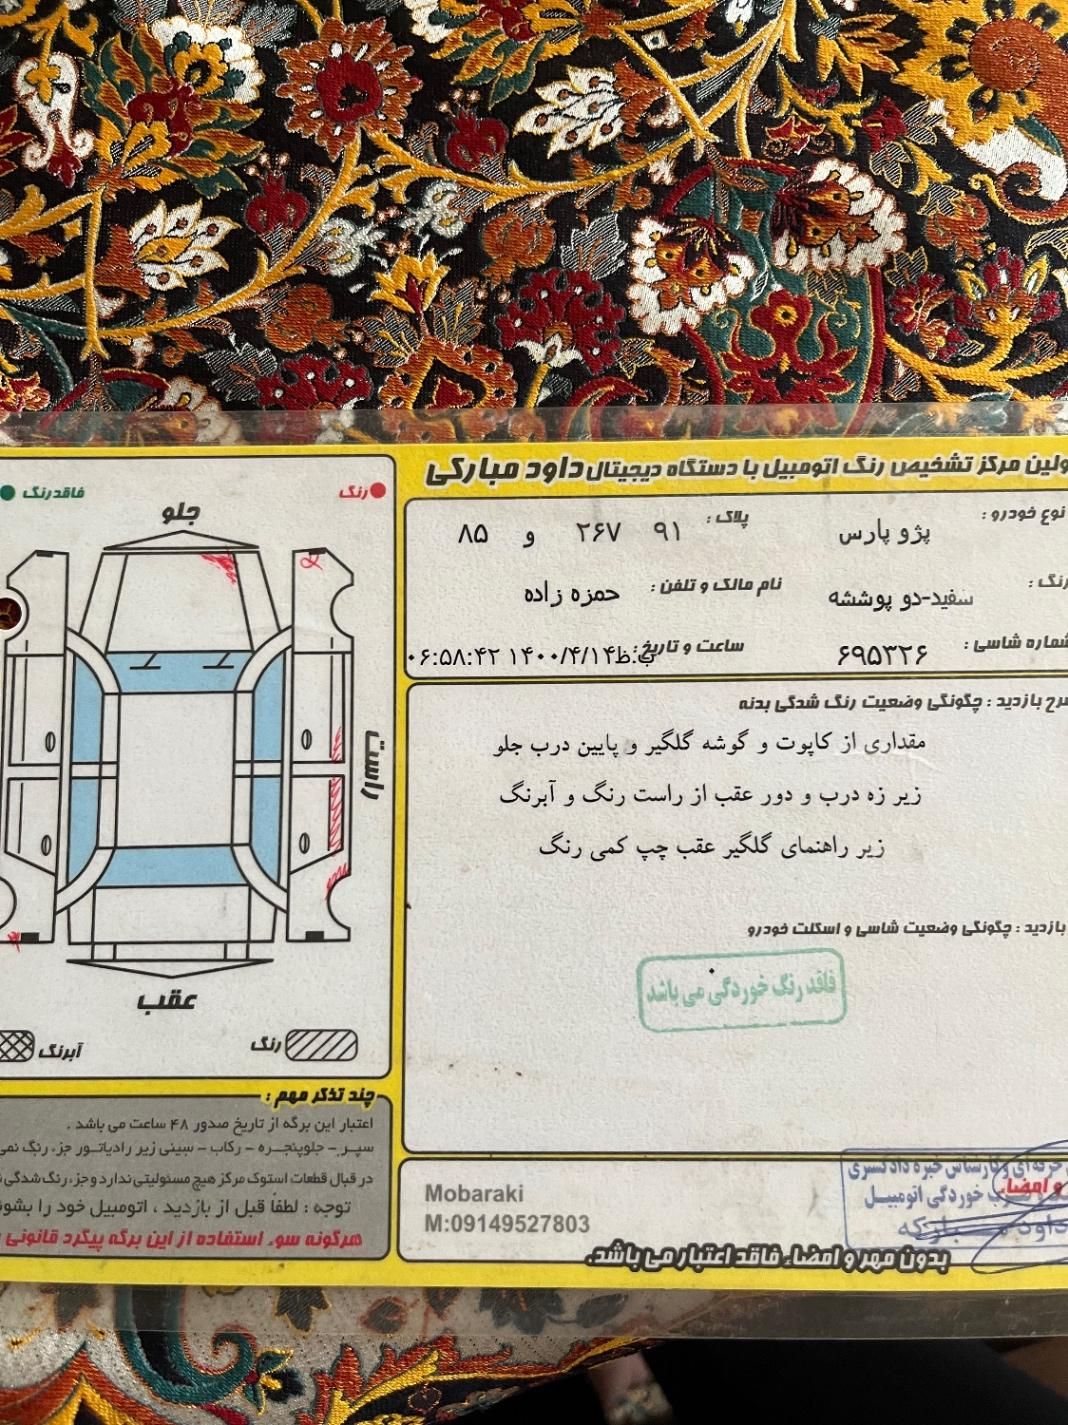 ولین مرکز تشخیص رنگ اتومبیل با دستگاه دیجیتال داود مبارکی
نوع خودرو :
پژو پارس
پلاک :
۹۱ ۲۶۷ و ۸۵
رنگ :
سفید-دو پوششه
نام مالک و تلفن :
حمزه زاده
شماره شاسی :
۶۹۵۳۲۶
ساعت و تاریخ :
۰۶:۵۸:۴۲ ب.ظ ۱۴۰۰/۴/۱۴
شرح بازدید : چگونگی وضعیت رنگ شدگی بدنه
مقداری از کاپوت و گوشه گلگیر و پایین درب جلو
زیر زه درب و دور عقب از راست رنگ و آبرنگ
زیر راهنمای گلگیر عقب چپ کمی رنگ
بازدید : چگونگی وضعیت شاسی و اسکلت خودرو
فاقد رنگ خوردگی می باشد
رنگ
فاقدرنگ
جلو
راست
عقب
رنگ
آبرنگ
چند تذکر مهم :
اعتبار این برگه از تاریخ صدور ۴۸ ساعت می باشد .
سپر - جلوپنجره - رکاب - سینی زیر رادیاتور جزء رنگ نمی
در قبال قطعات استوک مرکز هیچ مسئولیتی ندارد و جزء رنگ شدگی
توجه : لطفاً قبل از بازدید ، اتومبیل خود را بشو
هرگونه سوء استفاده از این برگه پیگرد قانونی
Mobaraki
M:09149527803
حرفه ای و کارشناس خبره دادگستری
و امضاء
خوردگی اتومبیل
داود
بدون مهر و امضاء فاقد اعتبار می باشد.